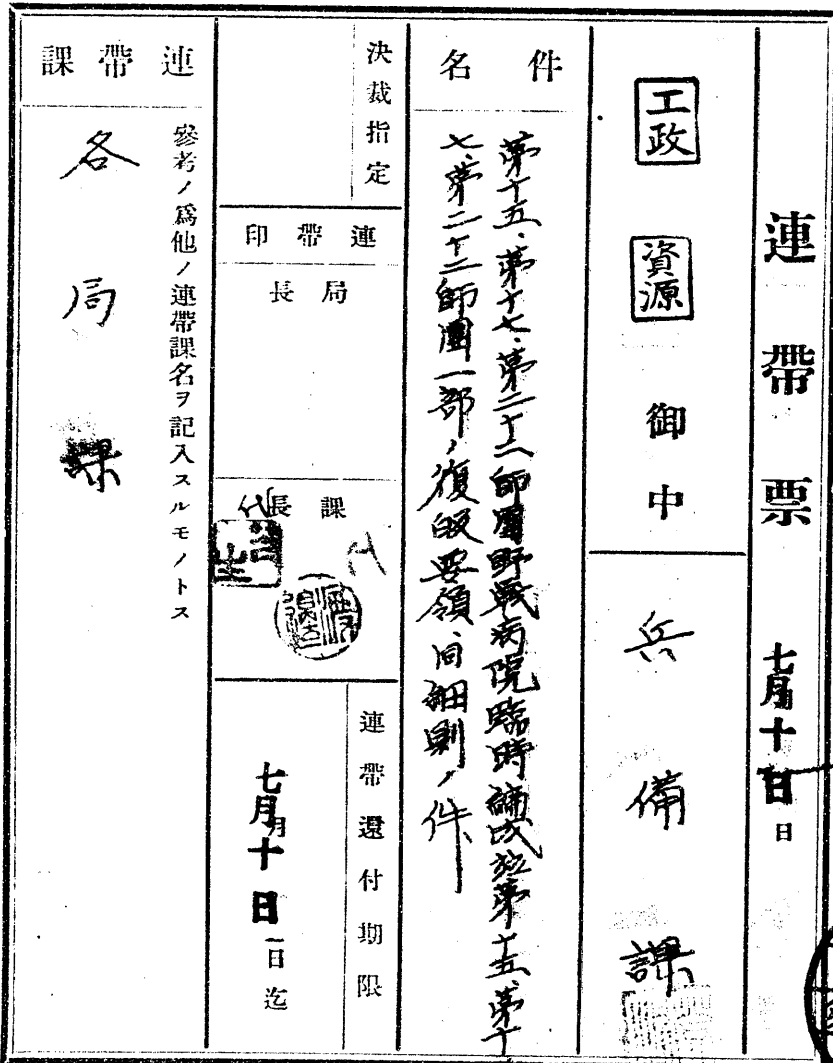 連帶票 七月十日日
工政 資源 御中
兵備課
件名
第十五、第十七、第二十二師團野戰病院臨時編成竝第十五、第十
七、第二十二師團一部ノ復歸要領、同細則ノ件
決裁指定
連帶印
局長
課長
代
代
連帶還付期限
七月月十日日迄
連帶課
參考ノ爲他ノ連帶課名ヲ記入スルモノトス
各局課